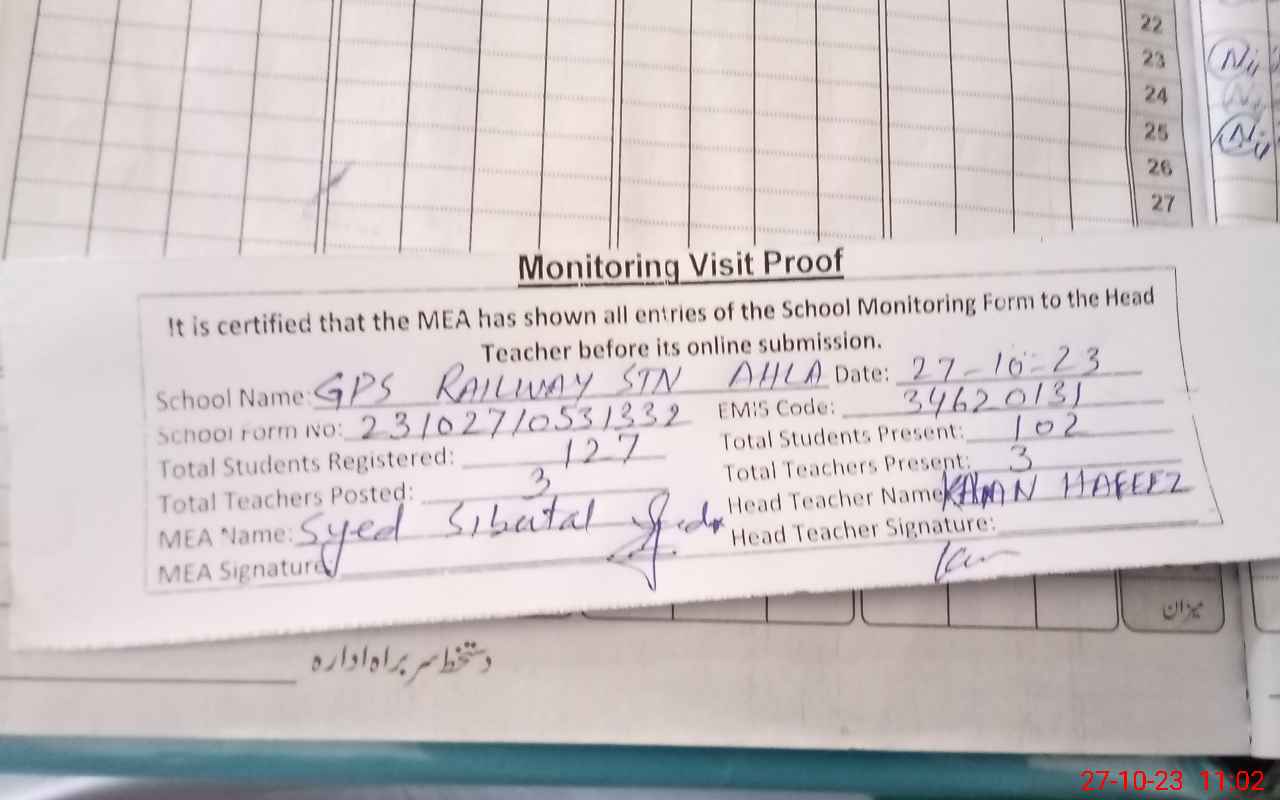 22
23
24
25
26
27
Monitoring Visit Proof
It is certified that the MEA has shown all entries of the School Monitoring Form to the Head
Teacher before its online submission.
School Name: GPS RAILWAY STN AHLA Date: 27-10-23
School Form No: 23102710531332 EMIS Code: 34620131
Total Students Registered: 127 Total Students Present: 102
Total Teachers Posted: 3 Total Teachers Present: 3
MEA Name: Syed Sibutal Head Teacher Name HAFEEZ
MEA Signature Head Teacher Signature:
میزان
دستخط سربراہ ادارہ
27-10-23 11:02